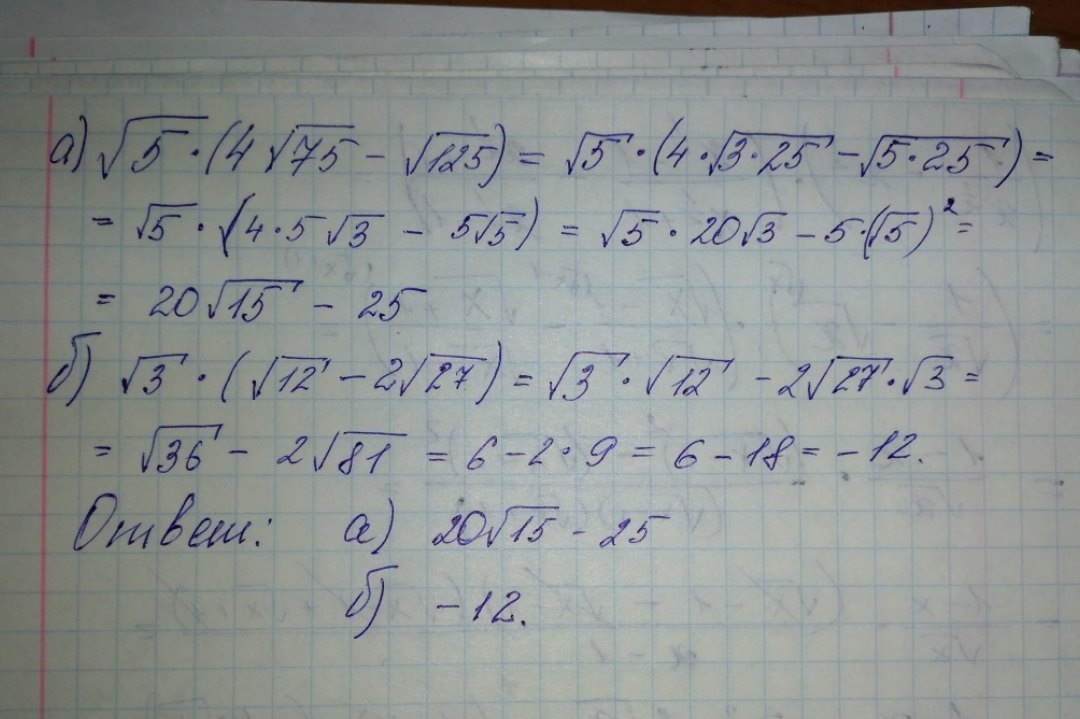 а) √5·(4√75 - √125) = √5·(4·√3·25 - √5·25) =
= √5·(4·5√3 - 5√5) = √5·20√3 - 5·(√5)² =
= 20√15 - 25
б) √3·(√12 - 2√27) = √3·√12 - 2√27·√3 =
= √36 - 2√81 = 6 - 2·9 = 6 - 18 = -12.
Ответ: а) 20√15 - 25
б) -12.